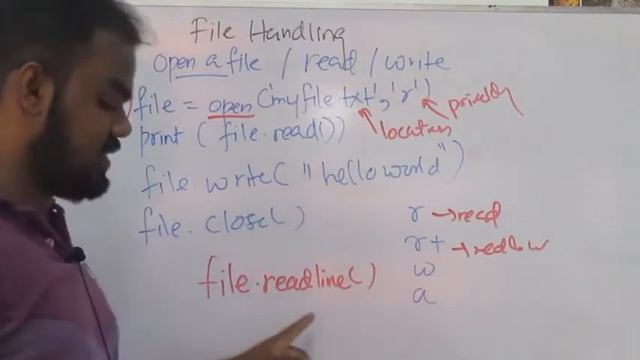 File Handling
open a file / read / write
file = open('myfile.txt', 'r')
location
print (file.read())
file.write("hello world")
file.close()
r → read
r+ →
w
a
file.readline()